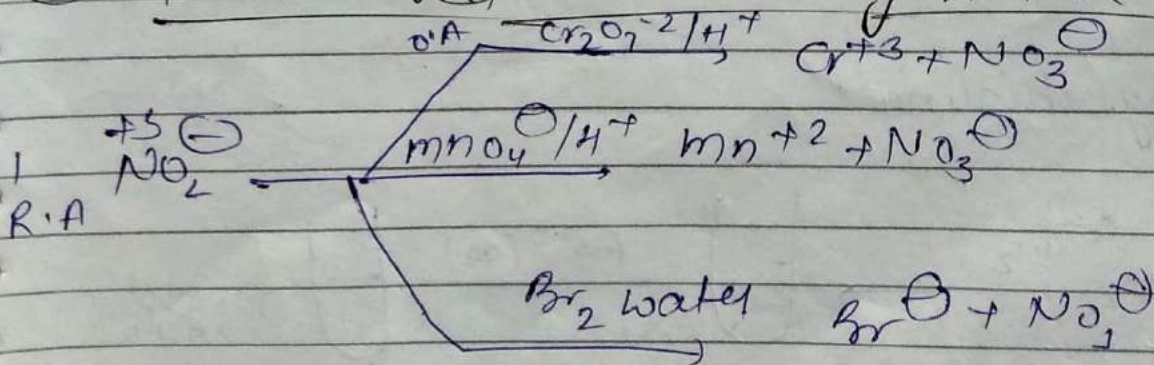 O.A Cr2O7-2/H+ Cr+3 + NO3⊖
+3
NO2⊖ MnO4⊖/H+ Mn+2 + NO3⊖
R.A
Br2 water Br⊖ + NO3⊖